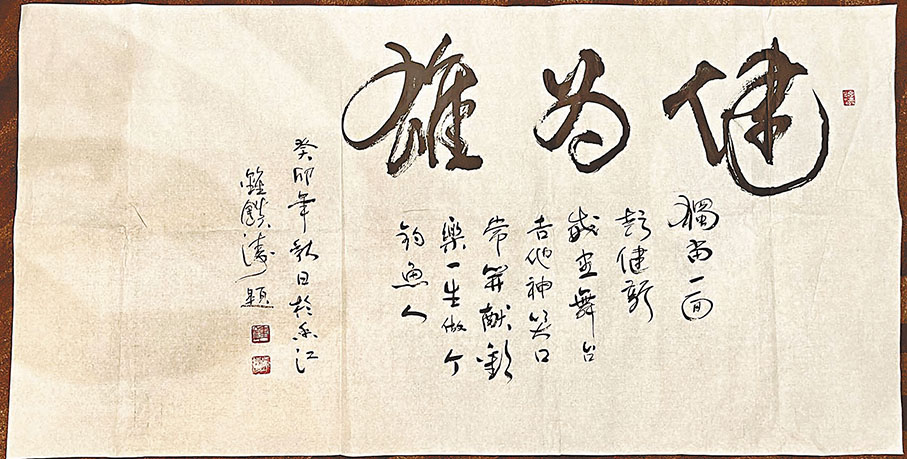 健為雄
獨當一面
彭健新
舞台
吉他神笑口
常開献歡
樂一生做个
釣魚人
癸卯年秋日於香江
鍾鎮濤題